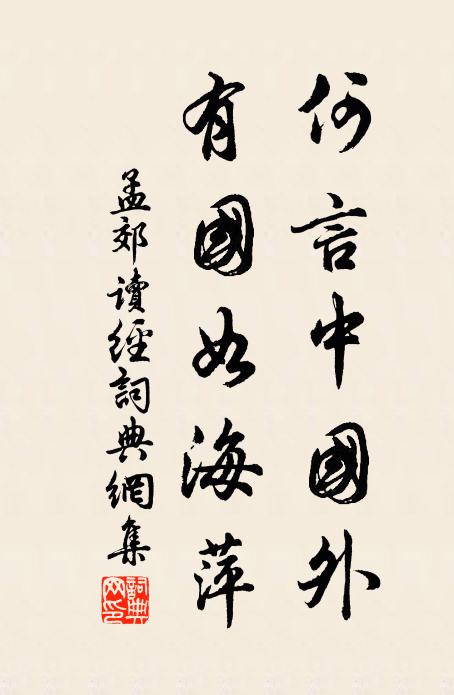 何言中國外
有國如海萍
孟郊讀經詞典網集
詞典
网印